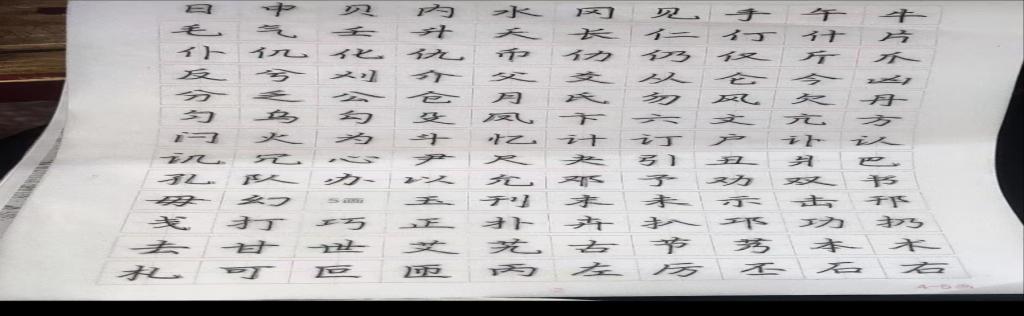 日 中 贝 内 水 冈 见 手 午 牛
毛 气 壬 升 夭 长 仁 仃 什 片
仆 仉 化 仇 币 仂 仍 仅 斤 爪
反 兮 刈 介 父 爻 从 仑 今 凶
分 乏 公 仓 月 氏 勿 风 欠 丹
匀 乌 勾 殳 凤 卞 六 文 亢 方
闩 火 为 斗 忆 计 订 户 讣 认
讥 冗 心 尹 尺 夬 引 丑 爿 巴
孔 队 办 以 允 邓 予 劝 双 书
毋 幻 5画 玉 刊 末 未 示 击 邗
戋 打 巧 正 扑 卉 扒 邛 功 扔
去 甘 世 艾 艽 古 节 艿 本 术
札 可 叵 匝 丙 左 厉 丕 石 右
4-5画